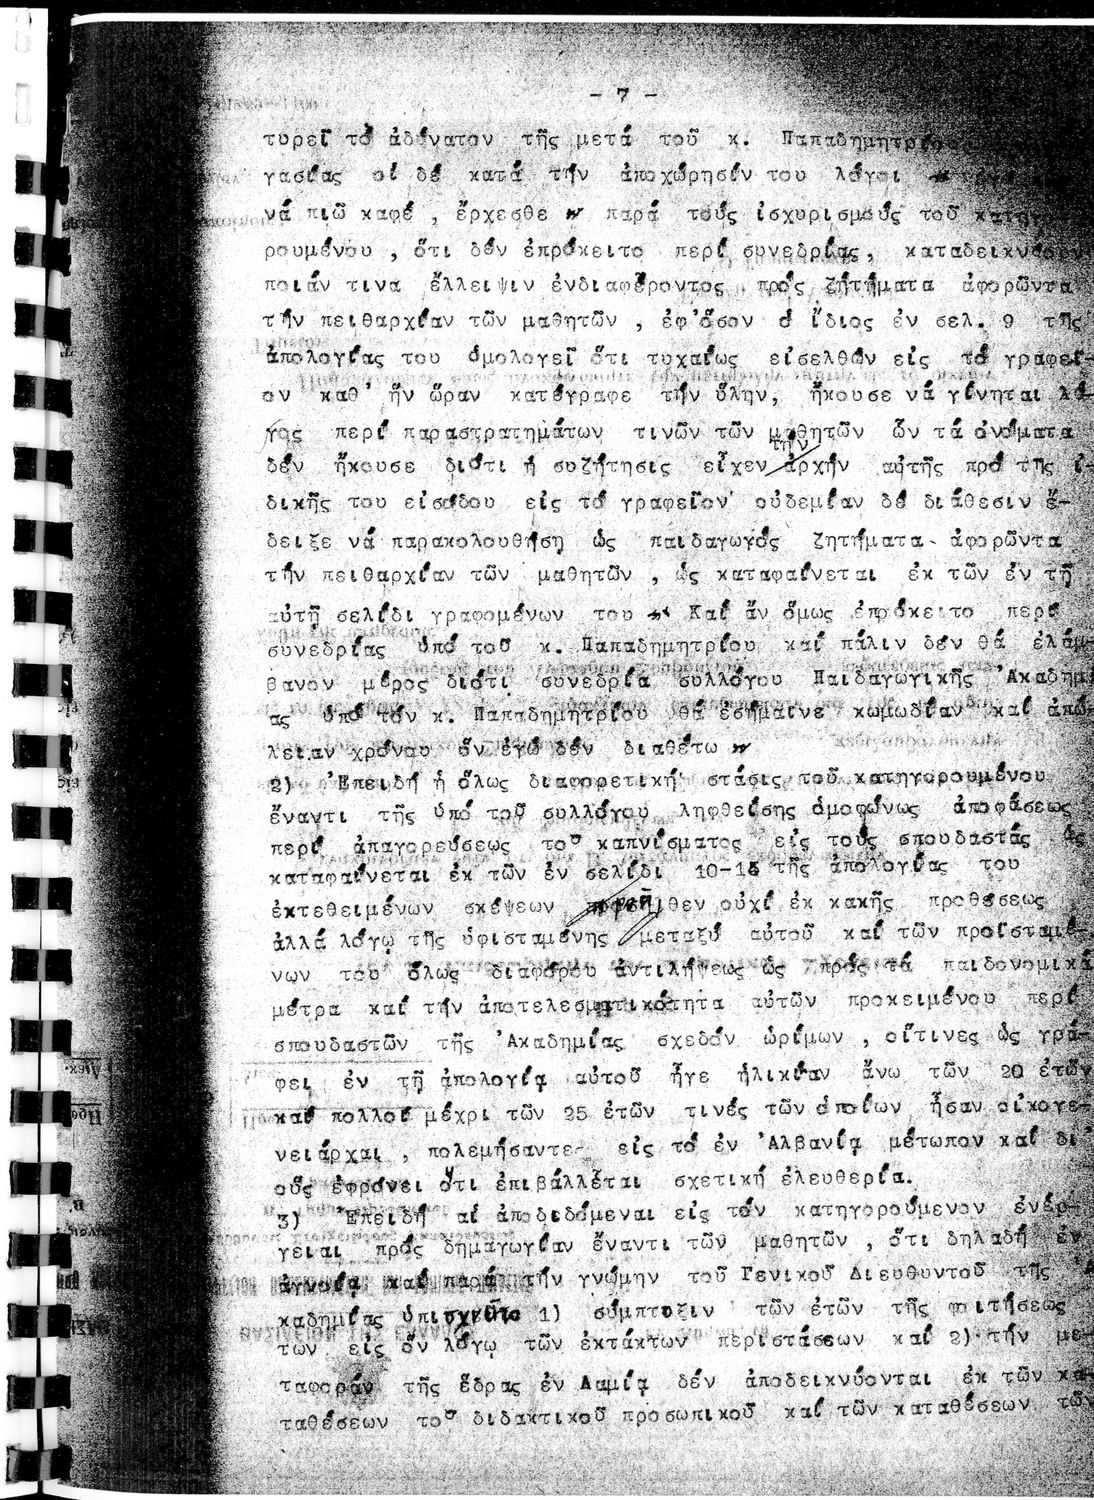 - 7 -
τυρεῖ τό ἀδύνατον τῆς μετά τοῦ κ. Παπαδημητρίου
γασίας οἱ δέ κατά τήν ἀποχώρησίν του λόγοι
νά πιῶ καφέ , ἔρχεσθε " παρά τούς ἰσχυρισμούς τοῦ κατηγο-
ρουμένου , ὅτι δέν ἐπρόκειτο περί συνεδρίας, καταδεικνύουν
ποιάν τινα ἔλλειψιν ἐνδιαφέροντος πρός ζητήματα ἀφορῶντα
τήν πειθαρχίαν τῶν μαθητῶν , ἐφ'ὅσον ὁ ἴδιος ἐν σελ. 9 τῆς
ἀπολογίας του ὁμολογεῖ ὅτι τυχαίως εἰσελθών εἰς τό γραφεῖ-
ον καθ' ἥν ὥραν κατέγραφε τήν ὕλην, ἤκουσε νά γίνηται λό-
γος περί παραστρατημάτων τινῶν τῶν μαθητῶν ὧν τά ὀνόματα
δέν ἤκουσε διότι ἡ συζήτησις εἶχεν τήν ἀρχήν αὐτῆς πρό τῆς ἰ-
δικῆς του εἰσόδου εἰς τό γραφεῖον' οὐδεμίαν δέ διάθεσιν ἔ-
δειξε νά παρακολουθήση ὡς παιδαγωγός ζητήματα ἀφορῶντα
τήν πειθαρχίαν τῶν μαθητῶν , ὡς καταφαίνεται ἐκ τῶν ἐν τῇ
αὐτῇ σελίδι γραφομένων του " Καί ἄν ὅμως ἐπρόκειτο περί
συνεδρίας ὑπό τοῦ κ. Παπαδημητρίου καί πάλιν δέν θά ἐλάμ-
βανον μέρος διότι συνεδρία συλλόγου Παιδαγωγικῆς Ἀκαδημί
ας ὑπό τόν κ. Παπαδημητρίου θά ἐσήμαινε κωμωδίαν καί ἀπώ-
λειαν χρόνου ὅν ἐγώ δέν διαθέτω "
2) Ἐπειδή ἡ ὅλως διαφορετική στάσις τοῦ κατηγορουμένου
ἔναντι τῆς ὑπό τοῦ συλλόγου ληφθείσης ὁμοφώνως ἀποφάσεως
περί ἀπαγορεύσεως τοῦ καπνίσματος εἰς τούς σπουδαστάς ὡς
καταφαίνεται ἐκ τῶν ἐν σελίδι 10-15 τῆς ἀπολογίας του
ἐκτεθειμένων σκέψεων οὐχί ἐκ κακῆς προθέσεως
ἀλλά λόγῳ τῆς ὑφισταμένης μεταξύ αὐτοῦ καί τῶν προϊσταμέ-
νων του ὅλως διαφόρου ἀντιλήψεως ὡς πρός τά παιδονομικά
μέτρα καί τήν ἀποτελεσματικότητα αὐτῶν προκειμένου περί
σπουδαστῶν τῆς Ἀκαδημίας σχεδόν ὡρίμων , οἵτινες ὡς γρά-
φει ἐν τῇ ἀπολογίᾳ αὐτοῦ ἦγε ἡλικίαν ἄνω τῶν 20 ἐτῶν
καί πολλοί μέχρι τῶν 25 ἐτῶν τινές τῶν ὁποίων ἦσαν οἰκογε-
νειάρχαι , πολεμήσαντε- εἰς τό ἐν Ἀλβανίᾳ μέτωπον καί δι'
οὕς ἐφρόνει ὅτι ἐπιβάλλεται σχετική ἐλευθερία.
3) Ἐπειδή αἱ ἀποδιδόμεναι εἰς τόν κατηγορούμενον ἐνέρ-
γειαι πρός δημαγωγίαν ἔναντι τῶν μαθητῶν , ὅτι δηλαδή ἐν
ἀγνοίᾳ καί παρά τήν γνώμην τοῦ Γενικοῦ Διευθυντοῦ τῆς Ἀ
καδημίας ὑπισχνεῖτο 1) σύμπτυξιν τῶν ἐτῶν τῆς φοιτήσεως
των εἰς ὅν λόγῳ τῶν ἐκτάκτων περιστάσεων καί 2) τήν με-
ταφοράν τῆς ἕδρας ἐν Λαμίᾳ δέν ἀποδεικνύονται ἐκ τῶν κα-
ταθέσεων τοῦ διδακτικοῦ προσωπικοῦ καί τῶν καταθέσεων τῶν